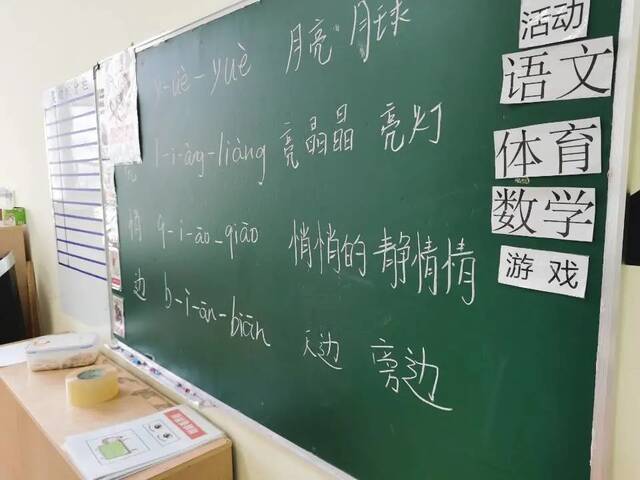 y-üè-yuè 月亮 月球
l-i-àng-liàng 亮晶晶 亮灯
悄 q-i-āo-qiāo 悄悄的 静情情
边 b-i-ān-biān 天边 旁边
活动
语文
体育
数学
游戏